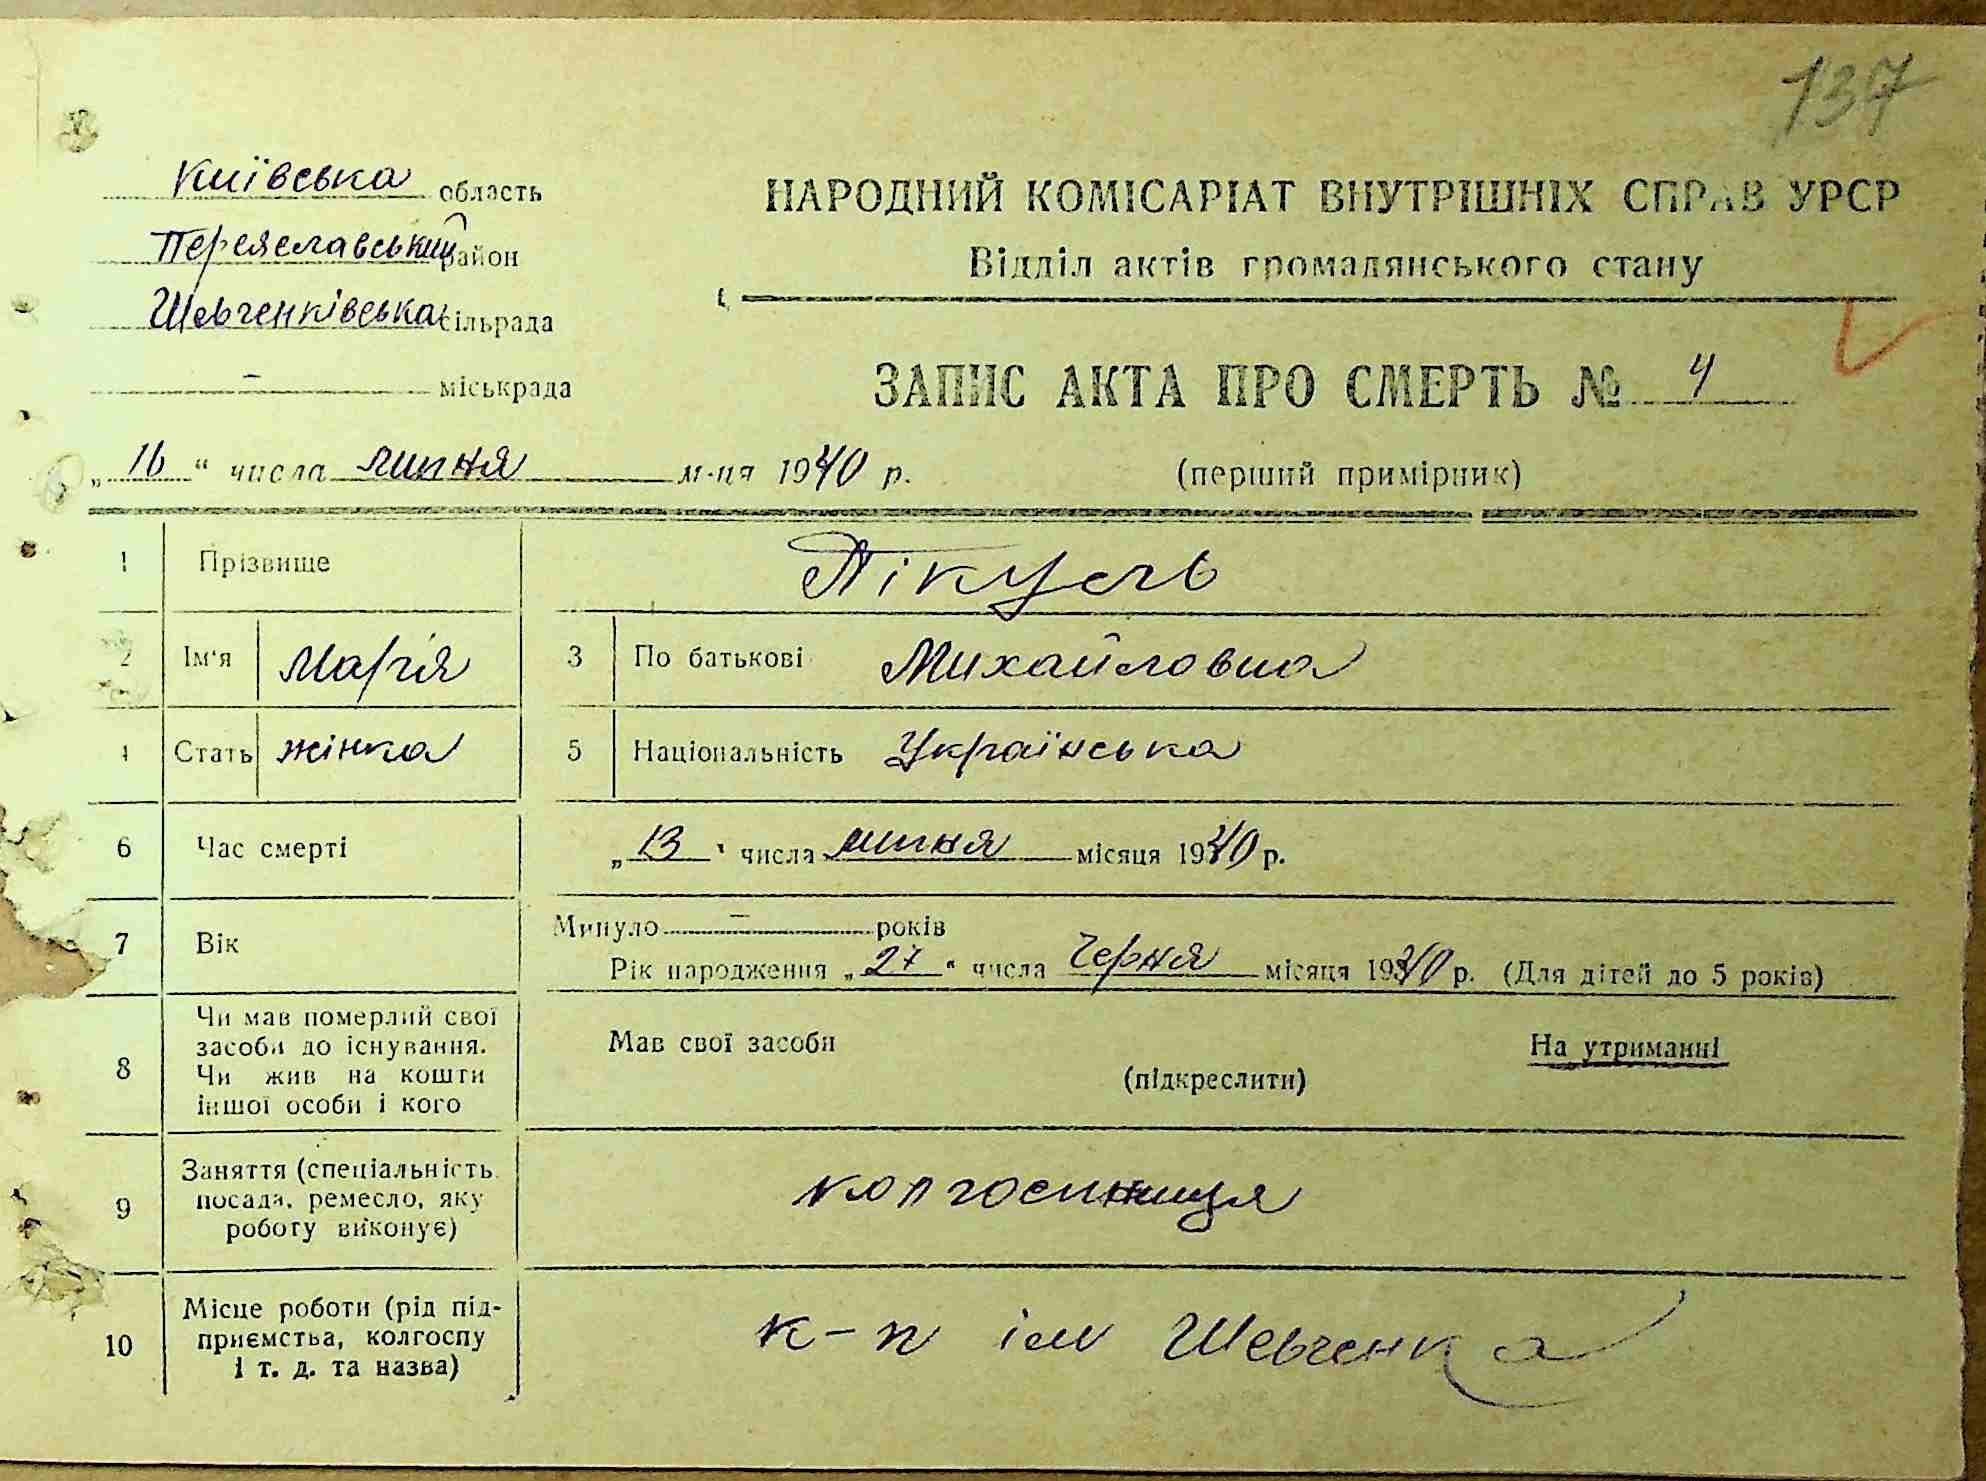 137
Київська область
Переяславський район
Шевченківська сільрада
– міськрада
НАРОДНИЙ КОМІСАРІАТ ВНУТРІШНІХ СПРАВ УРСР
Відділ актів громадянського стану
ЗАПИС АКТА ПРО СМЕРТЬ № 4
„16“ числа липня м-ця 1940 р.
(перший примірник)
1 Прізвище Пікуль
2 Ім'я Марія 3 По батькові Михайловна
4 Стать жінка 5 Національність Українська
6 Час смерті „13“ числа липня місяця 1940 р.
7 Вік Минуло – років
Рік народження „27“ числа Черня місяця 1940 р. (Для дітей до 5 років)
8 Чи мав померлий свої
засоби до існування.
Чи жив на кошти
іншої особи і кого
Мав свої засоби На утриманні
(підкреслити)
9 Заняття (спеціальність
посада, ремесло, яку
роботу виконує)
колгоспниця
10 Місце роботи (рід під-
приємства, колгоспу
і т. д. та назва)
к-п ім Шевченка